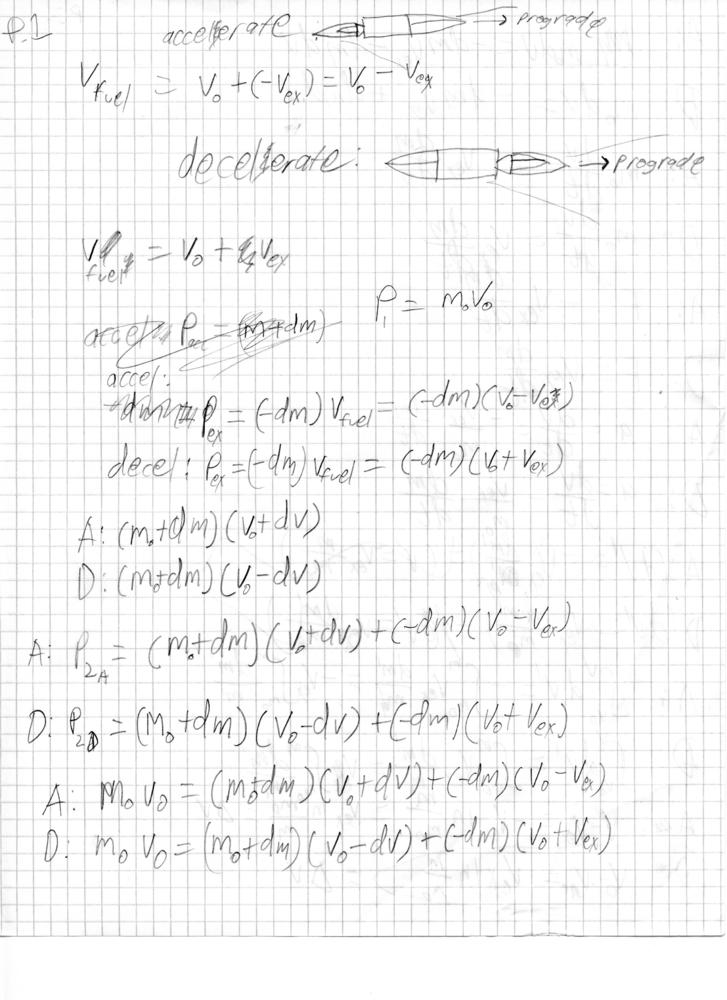 P.1
accellerate → prograde
V_fuel = V₀ + (-V_ex) = V₀ - V_ex
decellerate: → prograde
V_fuel = V₀ + V_ex
P₁ = m₀V₀
accel P = (m+dm)
accel:
P_ex = (-dm) V_fuel = (-dm)(V₀-V_ex)
decel: P_ex = (-dm) V_fuel = (-dm)(V₀+V_ex)
A: (m₀+dm)(V₀+dV)
D: (m₀+dm)(V₀-dV)
A: P_2A = (m₀+dm)(V₀+dV)+(-dm)(V₀-V_ex)
D: P_2D = (m₀+dm)(V₀-dV)+(-dm)(V₀+V_ex)
A: m₀V₀ = (m₀+dm)(V₀+dV)+(-dm)(V₀-V_ex)
D: m₀V₀ = (m₀+dm)(V₀-dV)+(-dm)(V₀+V_ex)